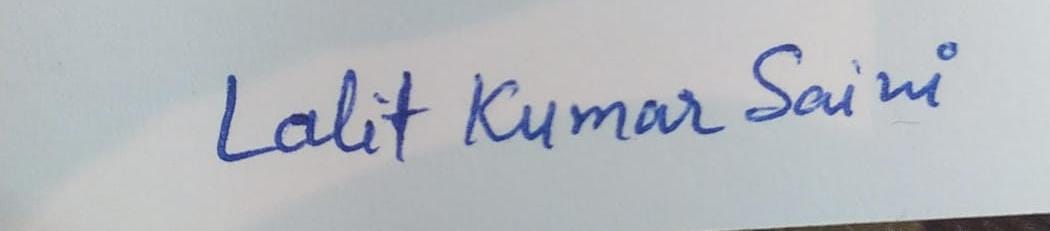 Lalit Kumar Saini